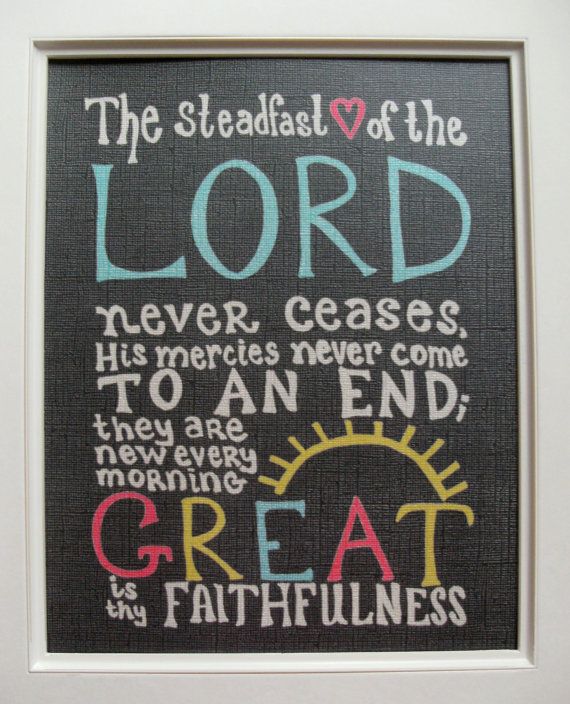 The steadfast ♥ of the
LORD
never ceases.
His mercies never come
TO AN END;
they are
new every
morning
GREAT
is
thy FAITHFULNESS